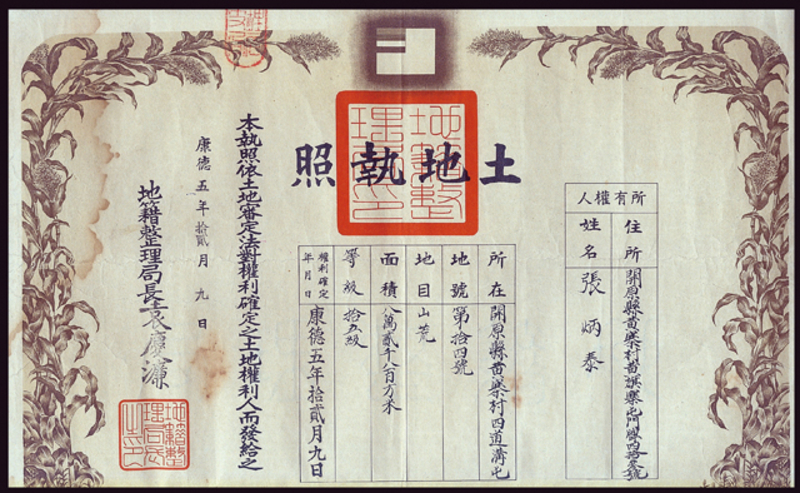 土地執照
所有權人
住所
開原縣黃寨村黃旗寨屯門牌四拾叁號
姓名
張炳泰
所在
開原縣黃寨村四道溝屯
地號
第拾四號
地目
山荒
面積
八萬貳千八百方米
等級
拾五級
權利確定年月日
康德五年拾貳月九日
本執照依土地審定法對權利確定之土地權利人而發給之
康德五年拾貳月九日
地籍整理局長袁慶濂
地籍整理局之印
地籍整理局長之印